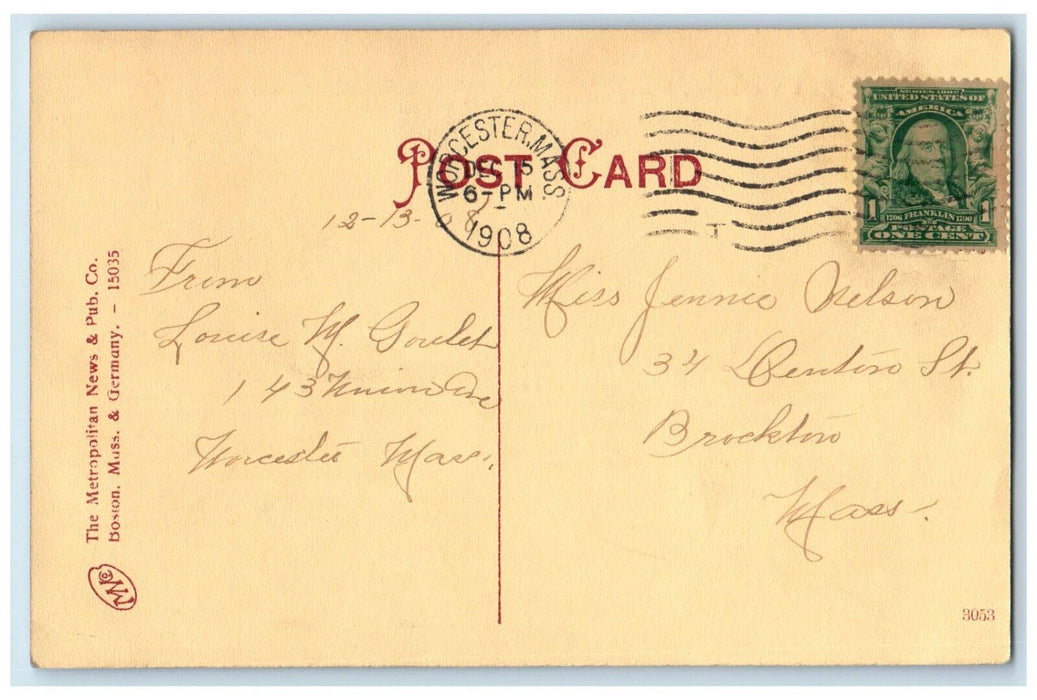 POST CARD
WORCESTER, MASS.
DEC 15
6-PM
1908
T
SERIES 1902
UNITED STATES OF
AMERICA
1 1706 FRANKLIN 1790 1
POSTAGE
ONE CENT
12-13-08
From
Louise M. Goulet
143 Union Ave
Worcester Mass.
Miss Jennie Nelson
34 Denton St.
Brockton
Mass.
The Metropolitan News & Pub. Co.
Boston, Mass. & Germany. - 15035
3053